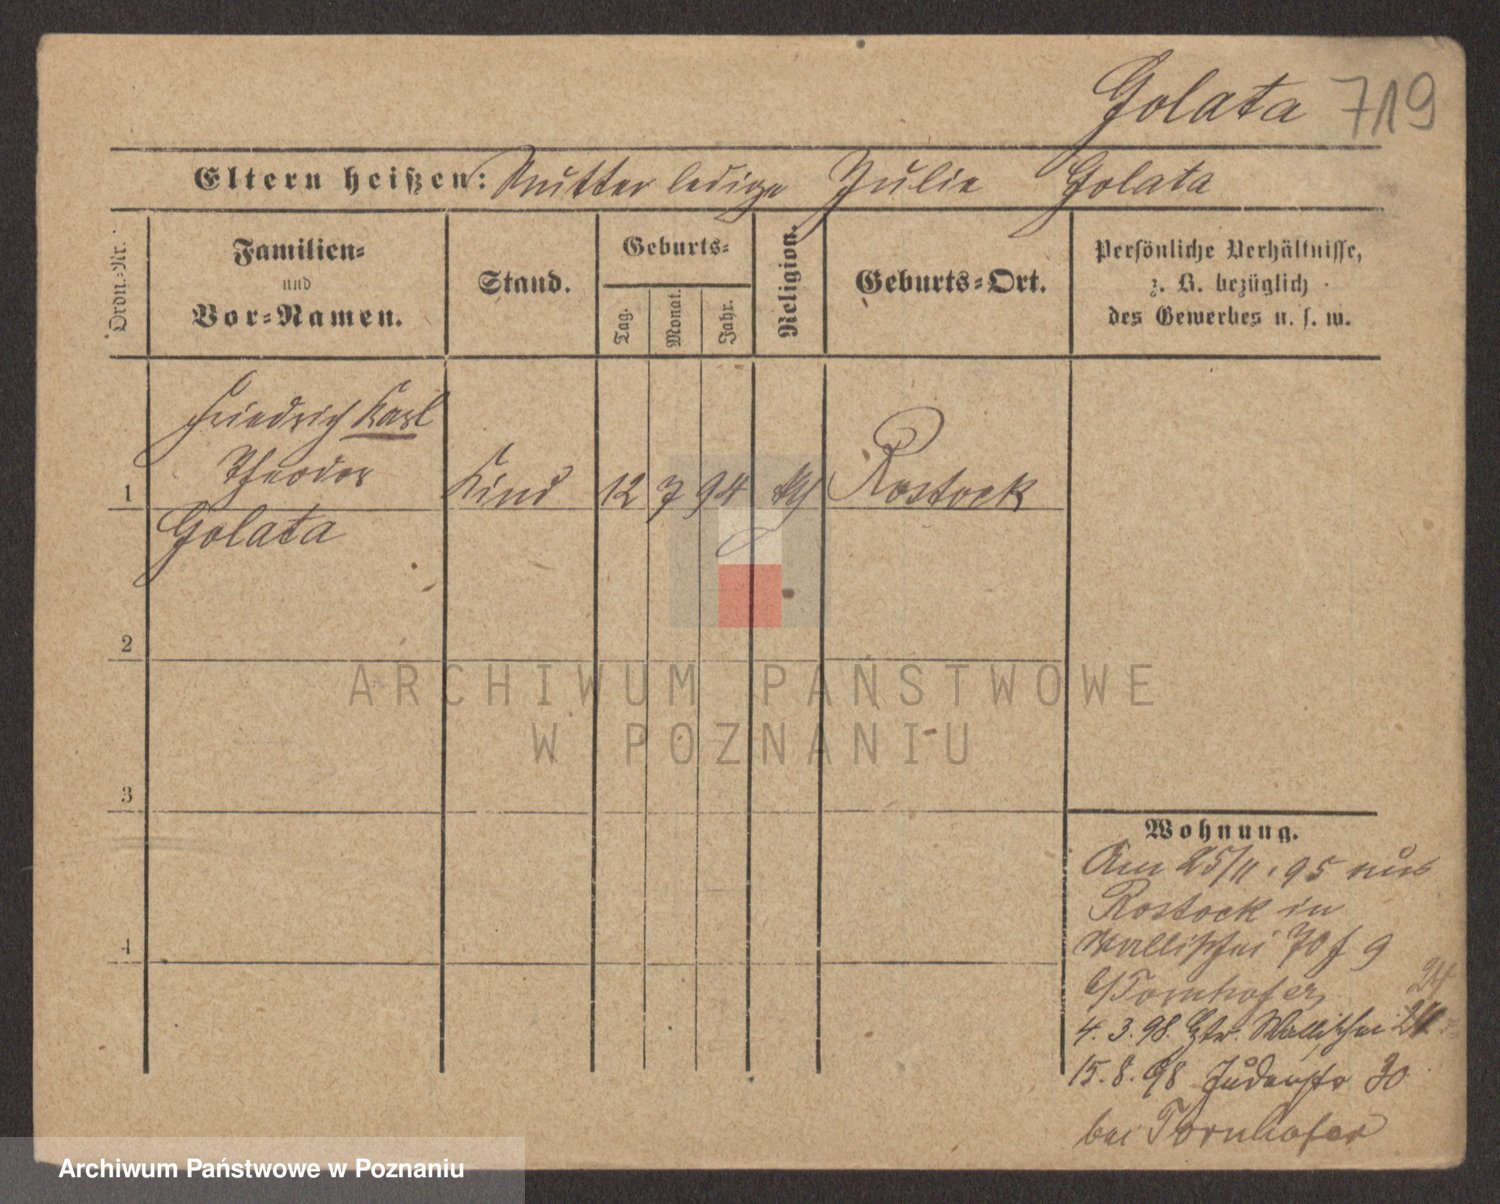 Golata 719
Eltern heißen: Mutter ledige Julie Golata
Ordn.-Nr.
Familien-
und
Vor-Namen.
Stand.
Geburts-
Tag.
Monat.
Jahr.
Religion.
Geburts-Ort.
Persönliche Verhältnisse,
z. B. bezüglich
des Gewerbes u. s. w.
Friedrich Karl
Theodor
1 Kind 12 7 94 Rostock
Golata
2
3
4
Wohnung.
Am 25/11.95 aus
Rostock in
Wallischei 70 9
b/Tornhofer
24
4.3.98. Wallischei
15.8.98 Judenstr 30
bei Tornhofer
ARCHIWUM PAŃSTWOWE
W POZNANIU
Archiwum Państwowe w Poznaniu